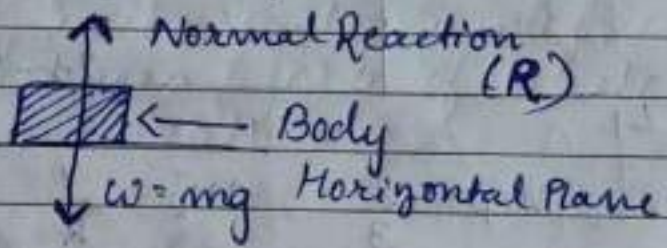 Normal Reaction
(R)
Body
W = mg Horizontal Plane